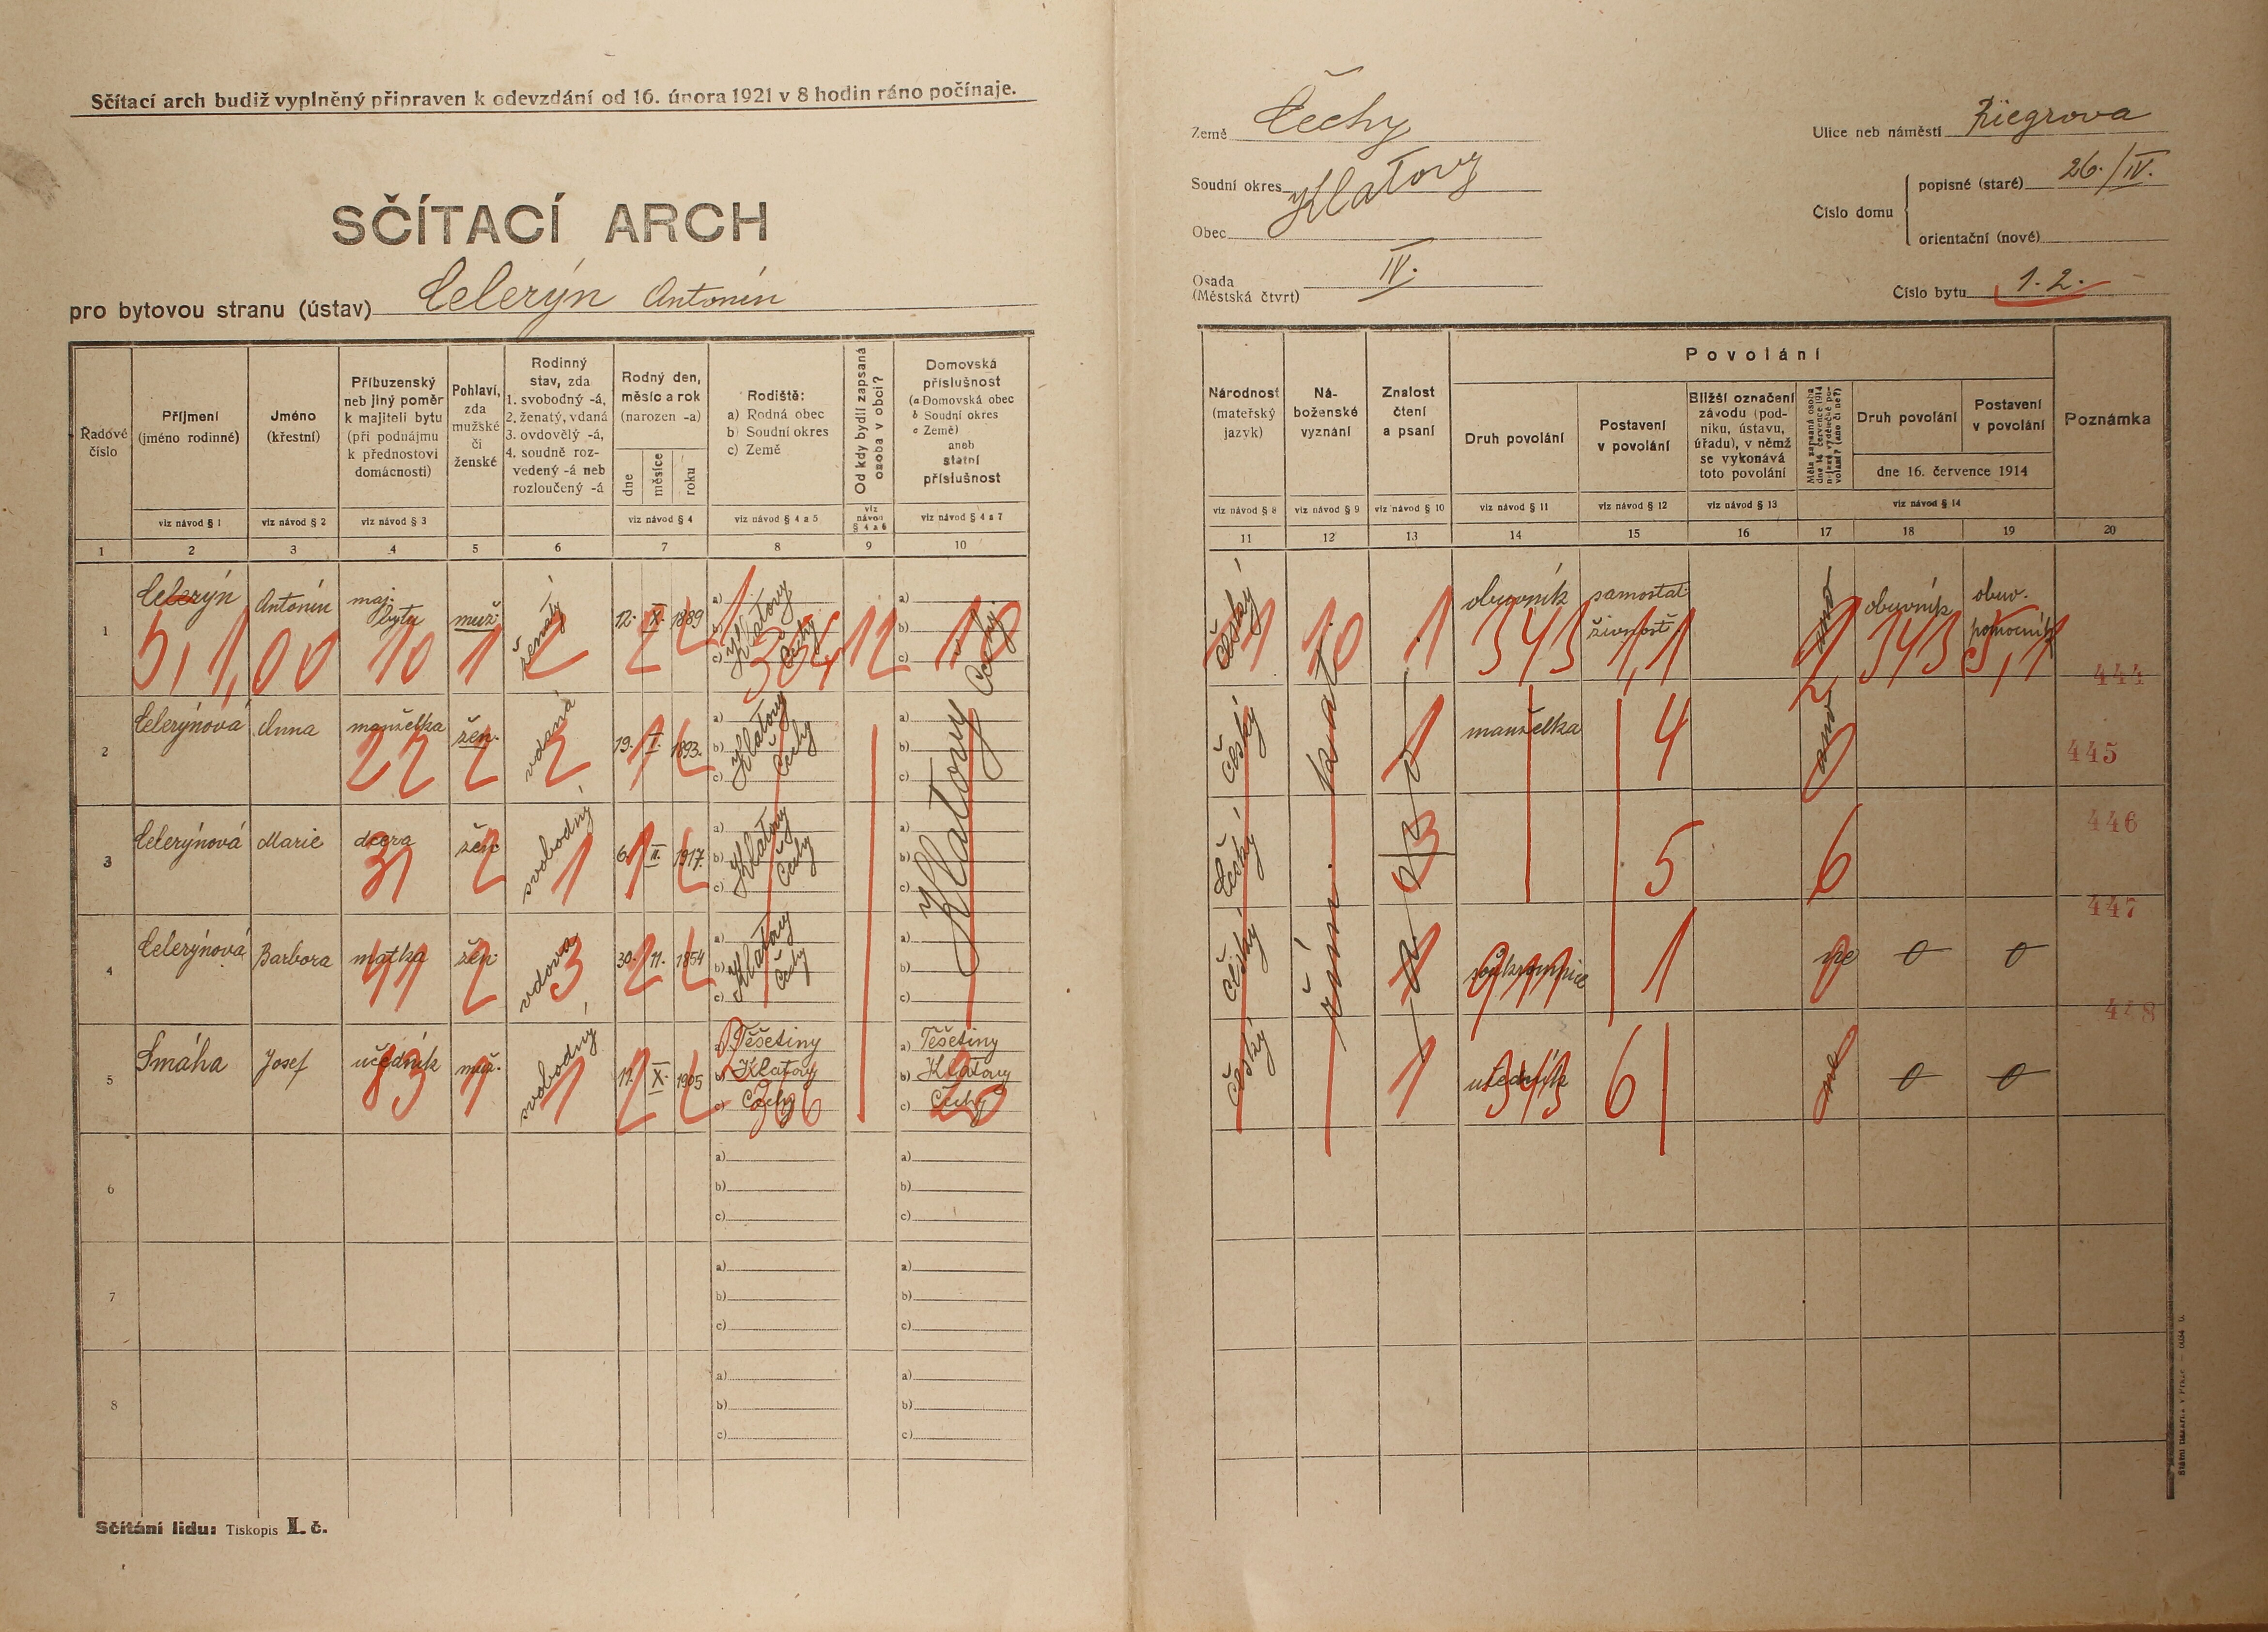 Sčítací arch budiž vyplněný připraven k odevzdání od 16. února 1921 v 8 hodin ráno počínaje.
SČÍTACÍ ARCH
pro bytovou stranu (ústav) Celerýn Antonín
Země Čechy
Soudní okres Klatovy
Obec
Osada (Městská čtvrt) IV.
Ulice neb náměstí Riegrova
Číslo domu
popisné (staré) 26./IV.
orientační (nové)
Číslo bytu 1. 2.
Řadové číslo
Příjmení (jméno rodinné)
Jméno (křestní)
Příbuzenský neb jiný poměr k majiteli bytu (při podnájmu k přednostovi domácnosti)
Pohlaví, zda mužské či ženské
Rodinný stav, zda 1. svobodný -á, 2. ženatý, vdaná 3. ovdovělý -á, 4. soudně rozvedený -á neb rozloučený -á
Rodný den, měsíc a rok (narozen -a)
dne měsíce roku
Rodiště: a) Rodná obec b) Soudní okres c) Země
Od kdy bydlí zapsaná osoba v obci?
Domovská příslušnost (a Domovská obec b Soudní okres c Země) aneb státní příslušnost
viz návod § 1
viz návod § 2
viz návod § 3
viz návod § 4
viz návod § 4 a 5
viz návod § 4 a 6
viz návod § 4 a 7
1 2 3 4 5 6 7 8 9 10
Národnost (mateřský jazyk)
Náboženské vyznání
Znalost čtení a psaní
Povolání
Druh povolání
Postavení v povolání
Bližší označení závodu (podniku, ústavu, úřadu), v němž se vykonává toto povolání
Měla zapsaná osoba dne 16. července 1914 nějaké výdělečné povolání? (ano či ne?)
Druh povolání
Postavení v povolání
dne 16. července 1914
Poznámka
viz návod § 8
viz návod § 9
viz návod § 10
viz návod § 11
viz návod § 12
viz návod § 13
viz návod § 14
11 12 13 14 15 16 17 18 19 20
1 Celerýn Antonín maj. bytu muž. ženatý 12. X. 1889 a) b) c) Klatovy Čechy
5,1,00 10 1 2 2 2 354 12 10
český 1 10 1 obuvník 343 samostat. živnost. 1,1 ano obuvník 343 obuv. pomocník 5,1
444
2 Celerýnová Anna manželka žen. vdaná 19. I. 1893. a) b) c) Klatovy Čechy
22 2 2 1 2
český 1 manželka 4 ano 445
3 Celerýnová Marie dcera žen svobodný 6. II. 1917. a) b) c) Klatovy Čechy
31 2 1 1 2
český 3 5 6 446
4 Celerýnová Barbora matka žen. vdova 30. 11. 1854 a) b) c) Klatovy Čechy
41 2 3 2 2
český 1 soukromnice 911 1 ne 0 0 447
Klatovy Čechy
řím. kat.
5 Smáha Josef učedník muž. svobodný 17. X. 1905
83 1 1 2 2
a) Těšetiny b) Klatovy c) Čechy
a) Těšetiny b) Klatovy c) Čechy
20
český 1 učedník 343 6 ne 0 0 448
6 a) b) c) a) b) c)
7 a) b) c) a) b) c)
8 a) b) c) a) b) c)
Sčítání lidu: Tiskopis I. č.